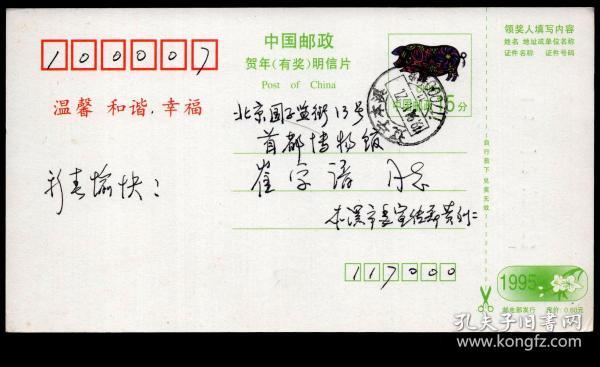 100007
中国邮政
贺年(有奖)明信片
Post of China
温馨 和谐 幸福
中国邮政
15分
北京国子监街13号
首都博物馆
崔学谙 同志
新春愉快!
本溪市委宣传部
117000
领奖人填写内容
姓名 地址或单位名称
证件名称 证件号码
自行剪下 兑奖无效
1995
邮电部发行 售价:0.60元
孔夫子旧书网
www.kongfz.com